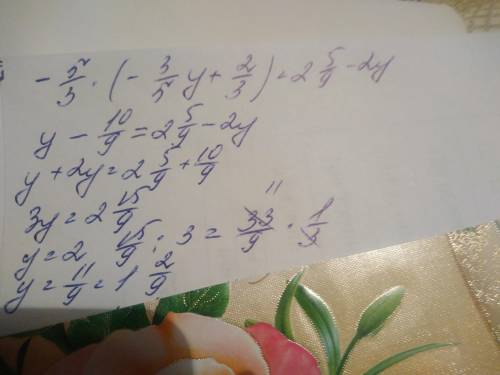 - 5/3 · (- 3/5 y + 2/3) = 2 5/9 - 2y
y - 10/9 = 2 5/9 - 2y
y + 2y = 2 5/9 + 10/9
3y = 2 15/9
y = 2 15/9 : 3 = 33/9 · 1/3
11
y = 11/9 = 1 2/9